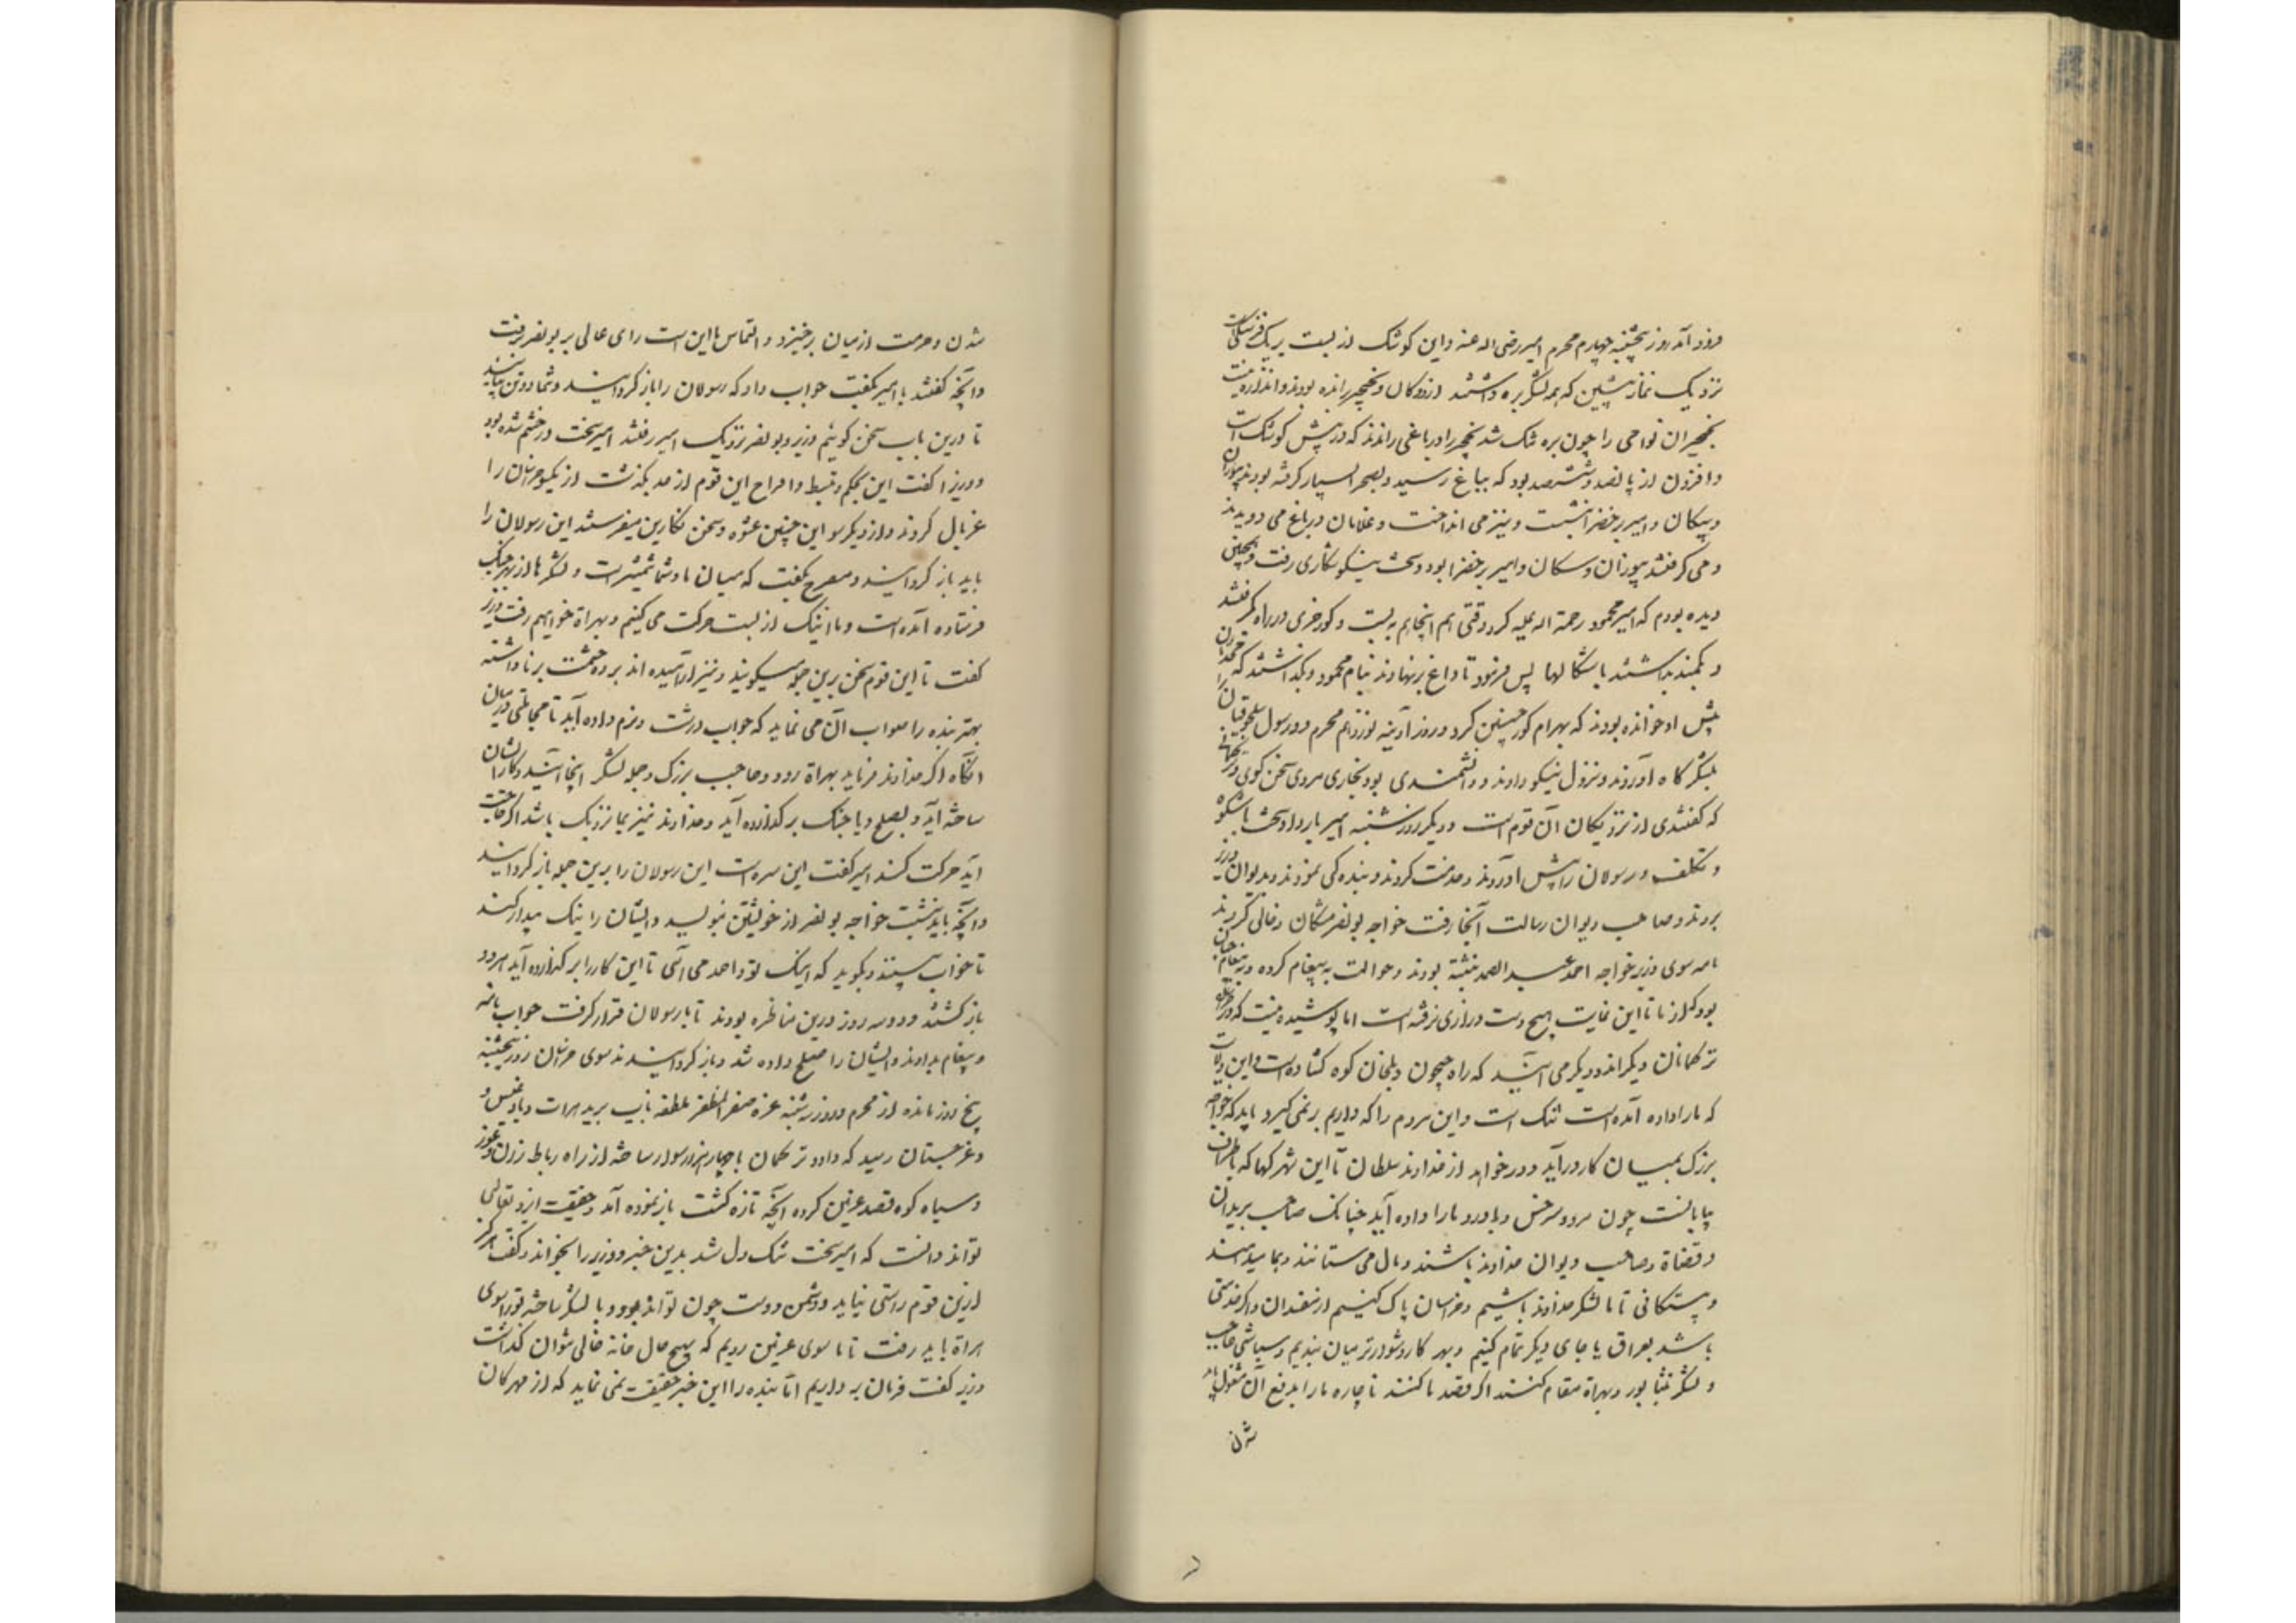 فرود آمد روز پنجشنبه چهارم محرم امیر رضی الله عنه و این کوشک از بست بر یک فرسنگست
نزدیک نماز پیشین که همه لشکر بره داشتند از ددکان و نخچیر رانده بودند و اندازه نیست
نخچیران نواحی را چون بره تنک شد نخچیر را در باغی راندند که در پیش کوشک است
و افزون از پانصد و ششصد بود که بباغ رسید و بصحرا بسیار گرفته بودند بیوزان
و بسکان و امیر بر خضرا بنشست و تیر می انداخت و غلامان در باغ می دویدند
و می گرفتند بیوزان و سکان و امیر بر خضرا بود و سخت نیکو شکاری رفت و همچنین
دیده بودم که امیر محمود رحمة اله علیه کرد وقتی هم اینجا هم به بست و گورخری در راه بگرفتند
و بکمند بداشتند با شکالها پس فرمود تا داغ برنهادند بنام محمود و بگذاشتند که محدثان
پیش او خوانده بودند که بهرام گور چنین کرد و روز آدینه نوزدهم محرم دو رسول سلجوقیان را
بلشکرگاه آوردند و نزول نیکو دادند و دانشمندی بود بخاری مردی سخن گوی و ترکمانی
که گفتندی از نزدیکان آن قوم است و دیگر روز شنبه امیر بار داد سخت باشکوه
و تکلف و رسولان را پیش آوردند و خدمت کردند و بندگی نمودند و بدیوان وزیر
بردند و صاحب دیوان رسالت آنجا رفت خواجه بونصر مشکان و خالی کردند
نامه سوی وزیر خواجه احمد عبد الصمد نبشته بودند و حوالت به پیغام کرده و پیغام چنان
بود که از ما تا این غایت هیچ دست درازی نرفته است اما پوشیده نیست که در خراسان
ترکمانان دیگراند و دیگر می آیند که راه جیحون و بلخان کوه گشاده است و این ولایت
که ما را داده آمده است تنک است و این مردم را که داریم بر نمی گیرد باید که خواجه
بزرک بمیان کار درآید و درخواهد از خداوند سلطان تا این شهرکها که باطراف
بیابانست چون مرو و سرخس و باورد ما را داده آید چنانک صاحب بریدان
و قضاة و صاحب دیوان خداوند باشند و مال می ستانند و بما میدهند
و بیستکانی تا ما لشکر خداوند باشیم و خراسان پاک کنیم از مفسدان و اگر خدمتی
باشد بعراق یا جای دیگر تمام کنیم و بهر کار دشوارتر میان بندیم و سباشی حاجب
و لشکر نشابور و بهراة مقام کنند اگر قصد ما کنند ناچاره ما را بدفع آن مشغول باید
شدن
شدن و حرمت از میان برخیزد و التماس ما این است رای عالی برتر بونصر برفت
و آنچه گفتند با امیر بگفت جواب داد که رسولان را باز گردانید و شما دو تن بیائید
تا درین باب سخن گوئیم وزیر و بونصر نزدیک امیر رفتند امیر سخت در خشم شده بود
و وزیر را گفت این تحکم و تبسط و اقراح این قوم از حد بگذشت از یکسو خراسان را
غربال کردند و از دیگر سو این چنین عشوه و سخن نکارین میفرستند این رسولان را
باید باز گردانید و مصرح بگفت که میان ما و شما شمشیر است و لشکرها از بهر جنک
فرستاده آمده است و ما اینک از بست حرکت می کنیم و بهراة خواهیم رفت وزیر
گفت تا این قوم سخن برین جمله میگویند و نیز نارامیده اند پرده حشمت بر ناداشته
بهتر بنده را صواب آن می نماید که جواب درشت و نرم داده آید تا مجاملتی در میان
آنگاه اگر خداوند فرماید بهراة رود و حاجب بزرک و جمله لشکر آنجا آیند و کار ایشان
ساخته آید و بصلح و یا جنک بر گزارده آید و خداوند نیز بما نزدیک باشد اگر حاجت
آید حرکت کند امیر گفت این سره است این رسولان را برین جمله باز گردانید
و آنچه باید نبشت خواجه بونصر از خویشتن بنویسد و ایشان را نیک بیدار کند
تا خواب نبینند و بگوید که اینک تو و احمد می آئی تا این کار را بر گزارده آید امرود
باز گشتند و دو سه روز درین مناظره بودند تا با رسولان قرار گرفت جواب نامه
و پیغام بدادند و ایشان را صلح داده شد و باز گردانیدند سوی خراسان روز پنجشنبه
پنج روز مانده از محرم و روز شنبه غره صفر المظفر ملطفه نایب برید هرات و بادغیس و
و غرجستان رسید که داود ترکمان با چهار هزار سوار ساخته از راه رباط رزان و غور
و سیاه کوه قصد غزنین کرده آنچه تازه گشت باز نموده آمد و حقیقت ایزد تعالی
تواند دانست که امیر سخت تنک دل شد بدین خبر و وزیر را بخواند و گفت هرگز
ازین قوم راستی نیاید و دشمن دوست چون تواند بود و با لشکر ساخته ترا سوی
هراة باید رفت تا ما سوی غزنین رویم که هیچ حال خانه خالی نتوان گذاشت
وزیر گفت فرمان بر داریم اما بنده را این خبر حقیقت نمی نماید که از مهرگان